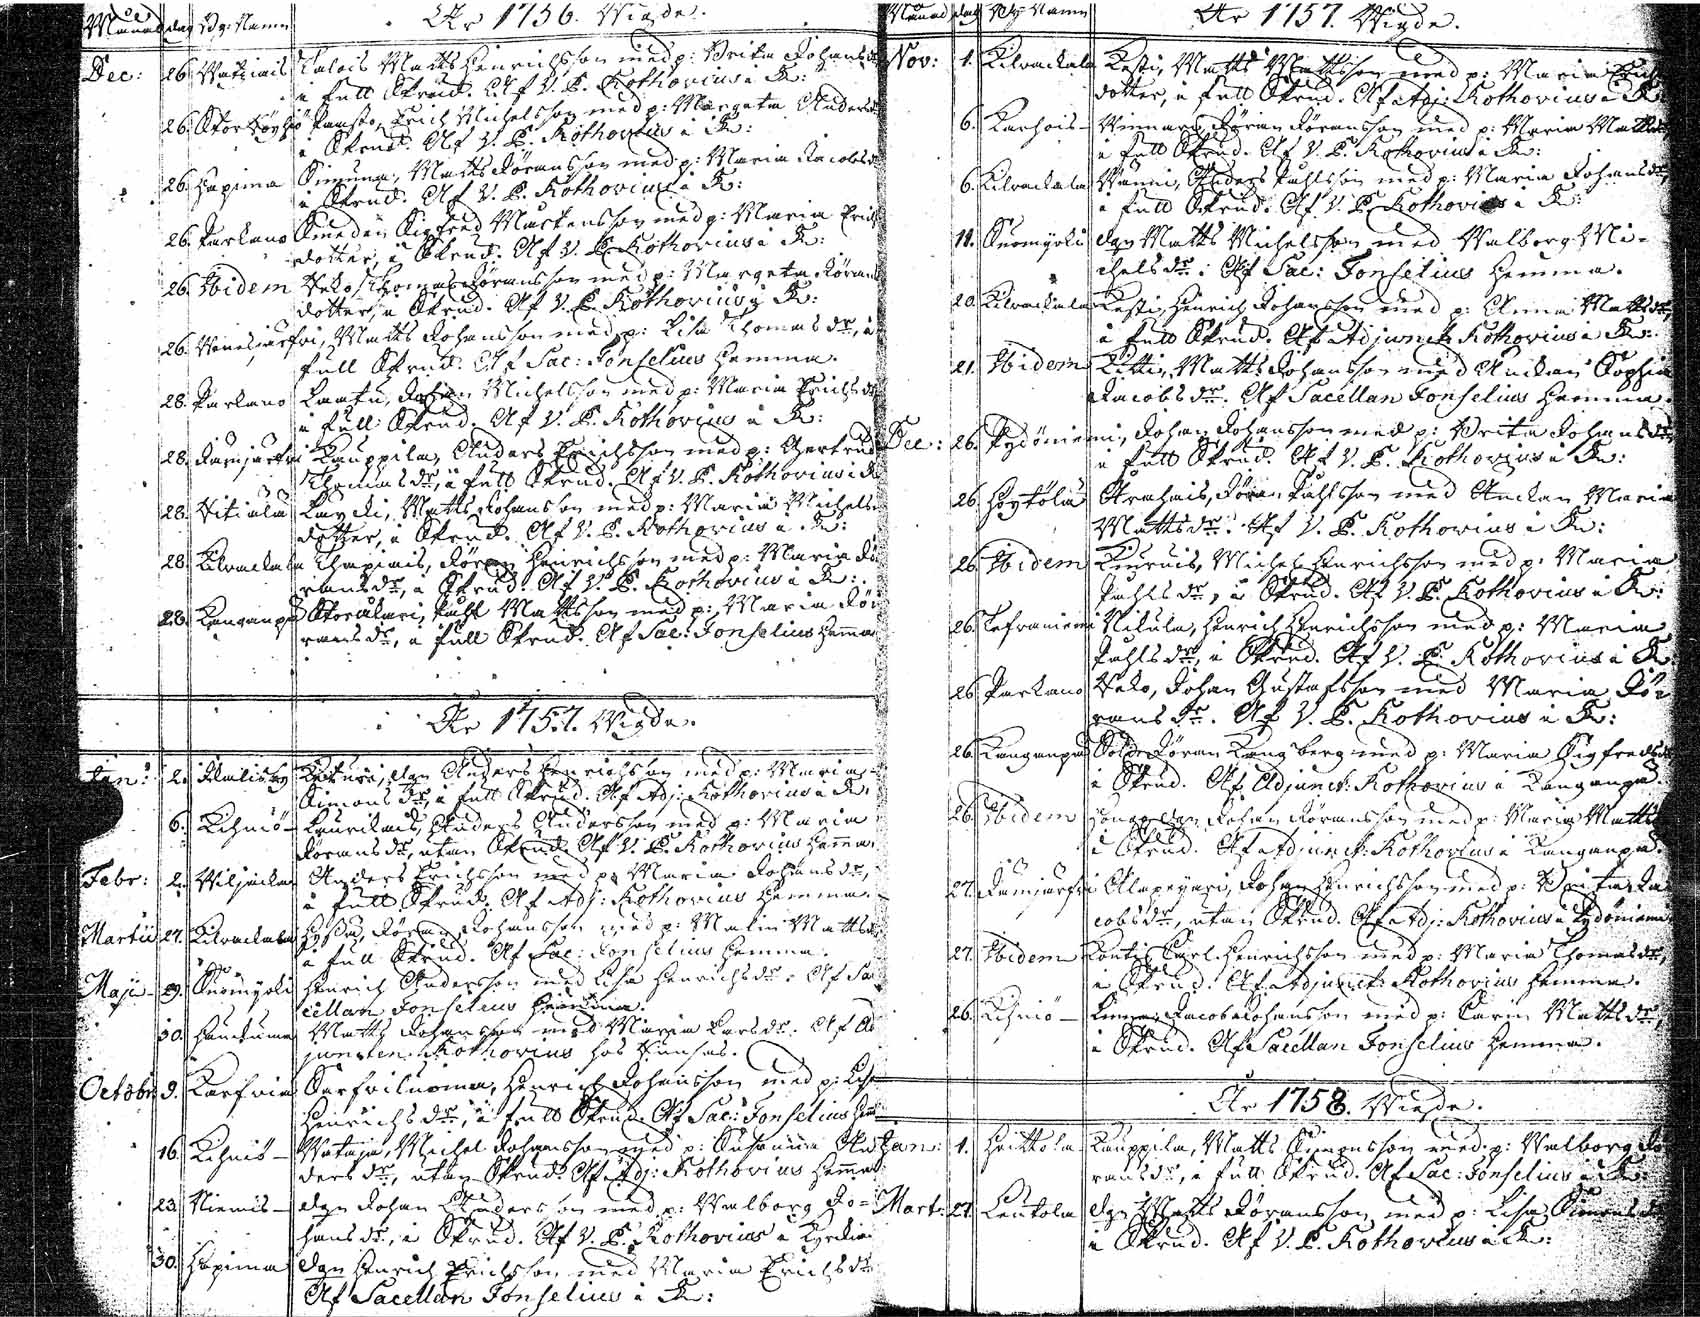 Månad dag By: Namn
År 1756. Vigde.
Dec: 26. Vatziais Talois Matts Henrichsson med p: Brita Johans dr
i full Skrud. Af V. P. Kothovius i K:
26. Erich Michelsson med p: Margeta Anders
i Skrud. Af V. P. Kothovius i K:
26. Hapima Simuna, Matts Jöransson med p: Maria Jacobs dr
i Skrud. Af V. P. Kothovius i K:
26. Parkano Smeden Sigfred Mårtensson med p: Maria Erichs
dotter, i Skrud. Af V. P. Kothovius i K:
26. Ibidem Thomas Jöransson med p: Margeta Jörans
dotter, i Skrud. Af V. P. Kothovius i K:
26. Matts Johansson med p: Lisa Thomas dr, i
full Skrud. Af Sac: Fonselius hemma.
28. Parkano Laatu, Johan Michelsson med p: Maria Erichs dr
i full Skrud. Af V. P. Kothovius i K:
28. Kauppila, Anders Erichsson med p: Gertrud
Thomas dr, i full Skrud. Af V. P. Kothovius i K
28. Matts Johansson med p: Maria Michels
dotter, i Skrud. Af V. P. Kothovius i K:
28. Kilvackala Jöran Henrichsson med p: Maria Jö
rans dr, i Skrud. Af V. P. Kothovius i K:
28. Kanganpä Påhl Mattsson med p: Maria Jö
rans dr, i full Skrud. Af Sac: Fonselius hemma
År 1757. Vigde.
Jan: 2. dgn Anders Henrichsson med p: Maria
Simons dr, i full Skrud. Af Adj: Kothovius i K:
6. Kihniö Anders Andersson med p: Maria
Jörans dr, utan Skrud. Af V. P. Kothovius hemma
Febr: 2. Anders Erichsson med p: Maria Johans dr,
i full Skrud. Af Adj: Kothovius hemma.
Martii 27. Kilvackala Jöran Johansson med p: Malin Matts dr
i full Skrud. Af Sac: Fonselius hemma.
Maji 29. Suomijoki Henrich Andersson med Lisa Henrichs dr. Af Sa
cellan Fonselius hemma.
30. Matts Johansson med Maria Lars dr. Af Ad
juncten Kothovius hos
Octobr. 9. Karfvia Sarfviluoma, Henrich Johansson med p: Lisa
Henrichs dr, i full Skrud. Af Sac: Fonselius hem
16. Kihniö Michel Johansson med p: Susanna An
ders dr, utan Skrud. Af Adj: Kothovius hemma
23. Niemis dgn Johan Andersson med p: Walborg Jo=
hans dr, i Skrud. Af V. P. Kothovius i
30. Hapima dgn Henrich Erichsson med Maria Erichs dr
Af Sacellan Fonselius i K:
Månad dag By Namn
År 1757. Vigde.
Nov: 1. Kilvackala Kesti, Matts Mattsson med p: Maria Erichs
dotter, i full Skrud. Af Adj: Kothovius i K:
6. Karhois Jöran Jöransson med p: Maria Matts dr
i full Skrud. Af V. P. Kothovius i K:
6. Kilvackala Anders Påhlsson med p: Maria Johans dr,
i full Skrud. Af V. P. Kothovius i K:
11. Suomijoki dgn Matts Michelsson med Walborg Mi-
chels dr: Af Sac: Fonselius hemma.
20. Kilvackala Kesti, Henrich Johansson med p: Anna Matts dr,
i full Skrud. Af Adjunct: Kothovius i K:
21. Ibidem Matts Johansson med Änckan Sophia
Jacobs dr. Af Sacellan Fonselius hemma.
Dec: 26. Johan Johansson med p: Brita Johans dr,
i full Skrud. Af V. P. Kothovius i K:
26. Höytölä Jöran Påhlsson med Änckan Maria
Matts dr. Af V. P. Kothovius i K:
26. Ibidem Michel Henrichsson med p: Maria
Påhls dr, i Skrud. Af V. P. Kothovius i K:
26. Nikula, Henrich Henrichsson med p: Maria
Påhls dr, i Skrud. Af V. P. Kothovius i K:
26. Parkano Johan Gustafsson med Maria Jö=
rans dr. Af V. P. Kothovius i K:
26. Kanganpä Sold. Jöran Kangberg med p: Maria Sigfreds dr
i Skrud. Af Adjunct: Kothovius i Kanganpä
26. Ibidem dgn Johan Jöransson med p: Maria Matts
i Skrud. Af Adjunct: Kothovius i Kanganpä.
27. Johan Henrichsson med p: Brita Ja
cobs dr, utan Skrud. Af Adj: Kothovius i
27. Ibidem Carl Henrichsson med p: Maria Thomas dr,
i Skrud. Af Adjunct: Kothovius hemma.
26. Kihniö Jacob Johansson med p: Carin Matts dr,
i Skrud. Af Sacellan Fonselius hemma.
År 1758. Vigde.
Jan: 1. Heittola Kauppila, Matts Simonsson med p: Walborg Jö
rans dr, i full Skrud. Af Sac: Fonselius i K:
Mart: 27. Leutola dgn Matts Jöransson med p: Lisa Simons dr
i Skrud. Af V. P. Kothovius i K: